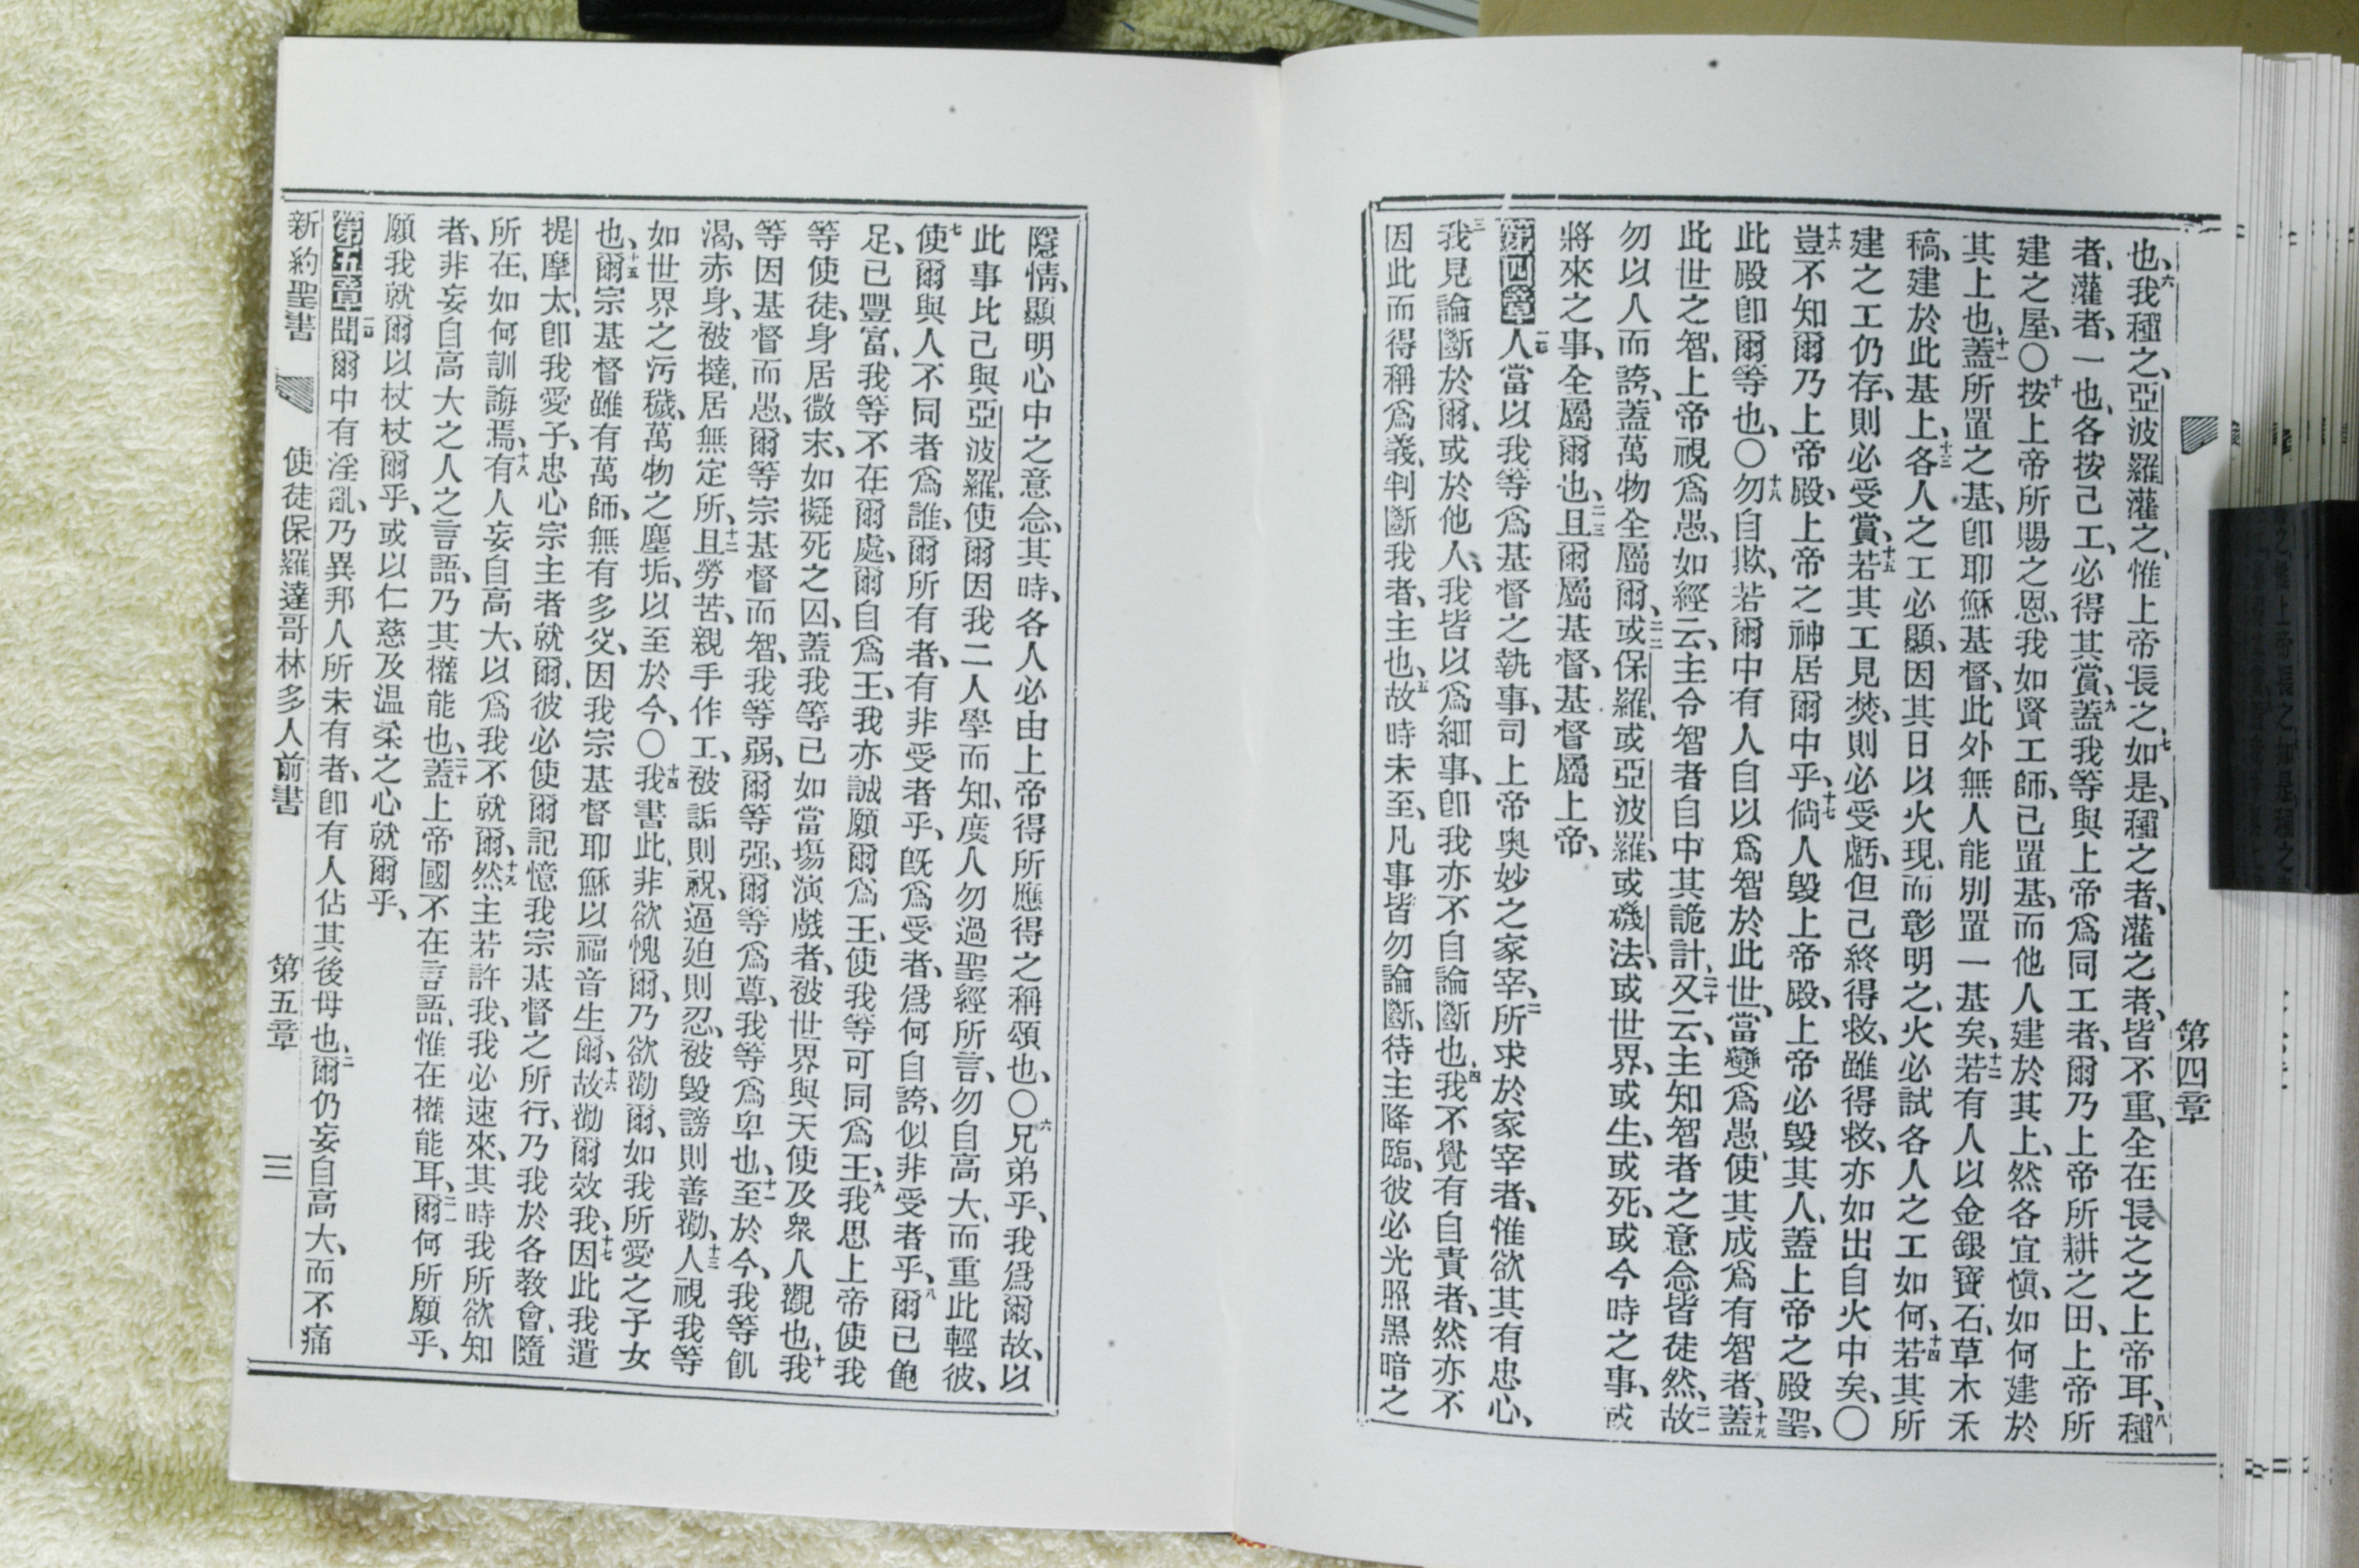 第四章
也、六我種之、亞波羅灌之、惟上帝長之、七如是、種之者、灌之者、皆不重、全在長之之上帝耳、八種
者、灌者、一也、各按己工、必得其賞、九蓋我等與上帝爲同工者、爾乃上帝所耕之田、上帝所
建之屋、〇十按上帝所賜之恩、我如賢工師、已置基、而他人建於其上、然各宜愼、如何建於
其上也、十一蓋所置之基、卽耶穌基督、此外無人能別置一基矣、十二若有人以金銀寶石草木禾
稿、建於此基上、十三各人之工必顯、因其日以火現、而彰明之、火必試各人之工如何、十四若其所
建之工仍存、則必受賞、十五若其工見焚、則必受虧、但己終得救、雖得救、亦如出自火中矣、〇
十六豈不知爾乃上帝殿、上帝之神居爾中乎、十七倘人毀上帝殿、上帝必毀其人、蓋上帝之殿聖、
此殿卽爾等也、〇十八勿自欺、若爾中有人自以爲智於此世、當變爲愚、使其成爲有智者、十九蓋
此世之智、上帝視爲愚、如經云、主令智者自中其詭計、二十又云、主知智者之意念皆徒然、二一故
勿以人而誇、蓋萬物全屬爾、二二或保羅、或亞波羅、或磯法、或世界、或生、或死、或今時之事、或
將來之事、全屬爾也、二三且爾屬基督、基督屬上帝、
第四章一節人當以我等爲基督之執事、司上帝奧妙之家宰、二所求於家宰者、惟欲其有忠心、
三我見論斷於爾、或於他人、我皆以爲細事、卽我亦不自論斷也、四我不覺有自責者、然亦不
因此而得稱爲義、判斷我者、主也、五故時未至、凡事皆勿論斷、待主降臨、彼必光照黑暗之
隱情、顯明心中之意念、其時、各人必由上帝得所應得之稱頌也、〇六兄弟乎、我爲爾故、以
此事比己與亞波羅、使爾因我二人學而知、度人勿過聖經所言、勿自高大、而重此輕彼、
七使爾與人不同者爲誰、爾所有者、有非受者乎、旣爲受者、爲何自誇、似非受者乎、八爾已飽
足、已豐富、我等不在爾處、爾自爲王、我亦誠願爾爲王、使我等可同爲王、九我思上帝使我
等使徒、身居微末、如擬死之囚、蓋我等已如當場演戲者、被世界與天使及衆人觀也、十我
等因基督而愚、爾等宗基督而智、我等弱、爾等强、爾等爲尊、我等爲卑也、十一至於今、我等飢
渴、赤身、被撻、居無定所、十二且勞苦、親手作工、被詬則祝、逼廹則忍、被毀謗則善勸、十三人視我等
如世界之污穢、萬物之塵垢、以至於今、〇十四我書此、非欲愧爾、乃欲勸爾、如我所愛之子女
也、十五爾宗基督雖有萬師、無有多父、因我宗基督耶穌以福音生爾、十六故勸爾效我、十七因此我遣
提摩太、卽我愛子、忠心宗主者就爾、彼必使爾記憶我宗基督之所行、乃我於各教會、隨
所在、如何訓誨焉、十八有人妄自高大、以爲我不就爾、十九然主若許我、我必速來、其時我所欲知
者、非妄自高大之人之言語、乃其權能也、二十蓋上帝國不在言語、惟在權能耳、二一爾何所願乎、
願我就爾以杖杖爾乎、或以仁慈及温柔之心就爾乎、
第五章一節聞爾中有淫亂、乃異邦人所未有者、卽有人佔其後母也、二爾仍妄自高大、而不痛
新約聖書 使徒保羅達哥林多人前書 第五章 三